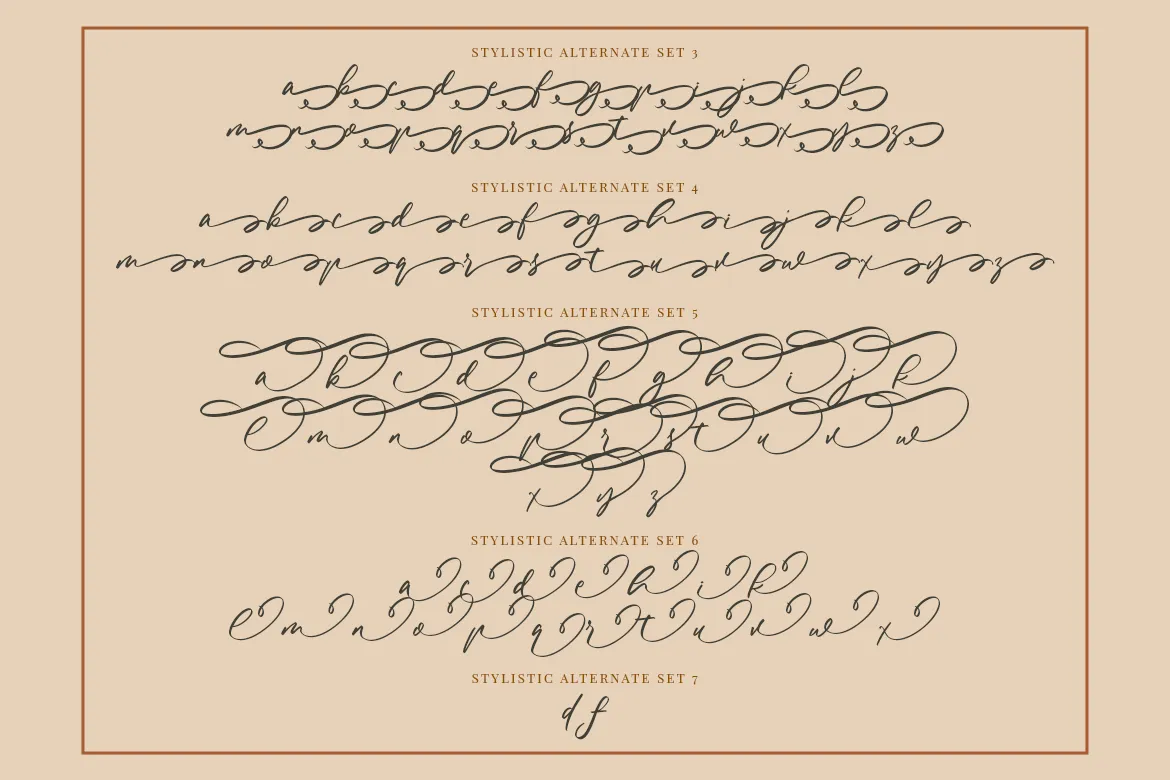 STYLISTIC ALTERNATE SET 3
a b c d e f g h i j k l
m n o p q r s t v w x y z
STYLISTIC ALTERNATE SET 4
a b c d e f g h i j k l
m n o p q r s t u v w x y z
STYLISTIC ALTERNATE SET 5
a b c d e f g h i j k
l m n o p r s t u v w
x y z
STYLISTIC ALTERNATE SET 6
a c d e h i k
l m n o p q r t u v w x
STYLISTIC ALTERNATE SET 7
d f